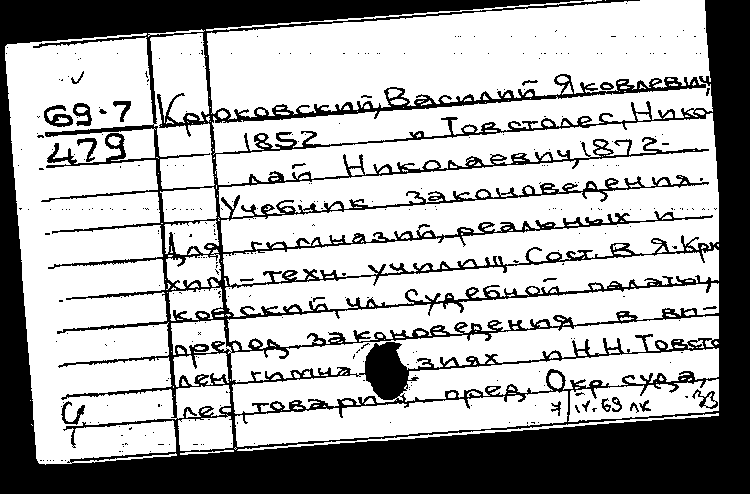 69-7
479
Крюковский, Василий Яковлевич,
1852 и Товстолес, Нико-
лай Николаевич, 1872-
Учебник законоведения.
Для гимназий, реальных и
хим.-техн. училищ. Сост. В. Я. Крю
ковский, чл. судебной палаты,
препод. законоведения в ви-
лен. гимна зиях и Н.Н. Товсто
лес, товарищ. пред. Окр. суда,
7/IV.69 лк 33